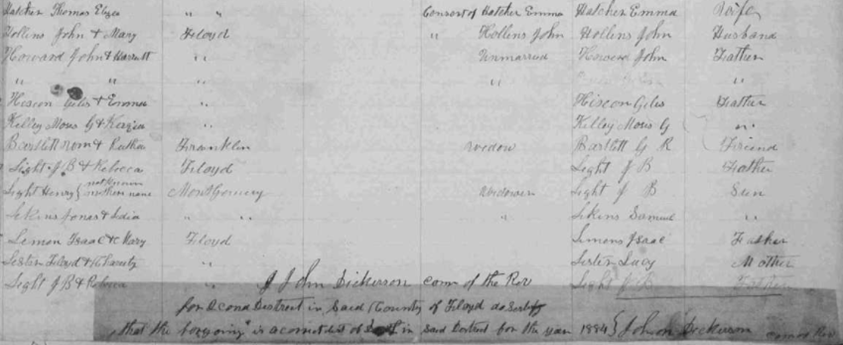 Hatcher Thomas Eliza " " Consort of Hatcher Emma Hatcher Emma Wife
Hollins John & Mary Floyd " Hollins John Hollins John Husband
Howard John & Harrett " Unmarried Howard John Father
" " " " "
Hiscon Giles & Emma " Hiscon Giles Father
Kelley Mous G & Kozia " Kelley Mous G "
Bartlett Wom & Ruthan Franklin Wedow Bartlett G R Friend
Light J B & Rebecca Floyd Light J B Father
Light Henry { not known mothers name Montgomery Widower Light J B Sun
Sekins Jones & Lidia " " " Sekins Samuel "
Lemon Isaac & Mary Floyd Lemons Isaac Father
Lester Floyd & Charity " Lester Lucy Mother
Light J B & Rebecca Light J B
I John Dickerson com of the Rev
for Second District in Said County of Floyd do Sertify
that the forgoing is a corect list of in said District for the year 1884 } John Dickerson com of Rev